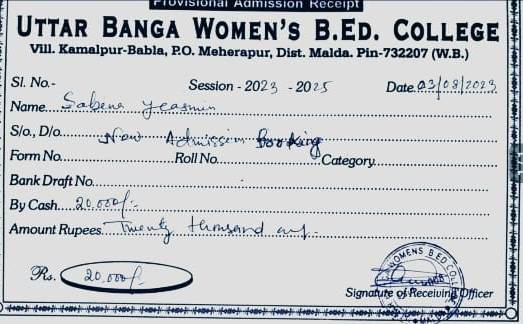 Provisional Admission Receipt
UTTAR BANGA WOMEN'S B.ED. COLLEGE
Vill. Kamalpur-Babla, P.O. Meherapur, Dist. Malda. Pin-732207 (W.B.)
Sl. No.- Session - 2023 - 2025 Date 03/08/2023
Name Sabena Yeasmin
S/o., D/o. New Admission Booking
Form No. Roll No. Category
Bank Draft No.
By Cash 20,000/-
Amount Rupees Twenty thousand only.
Rs. 20,000/-
WOMENS B.ED COLL
Signature of Receiving Officer